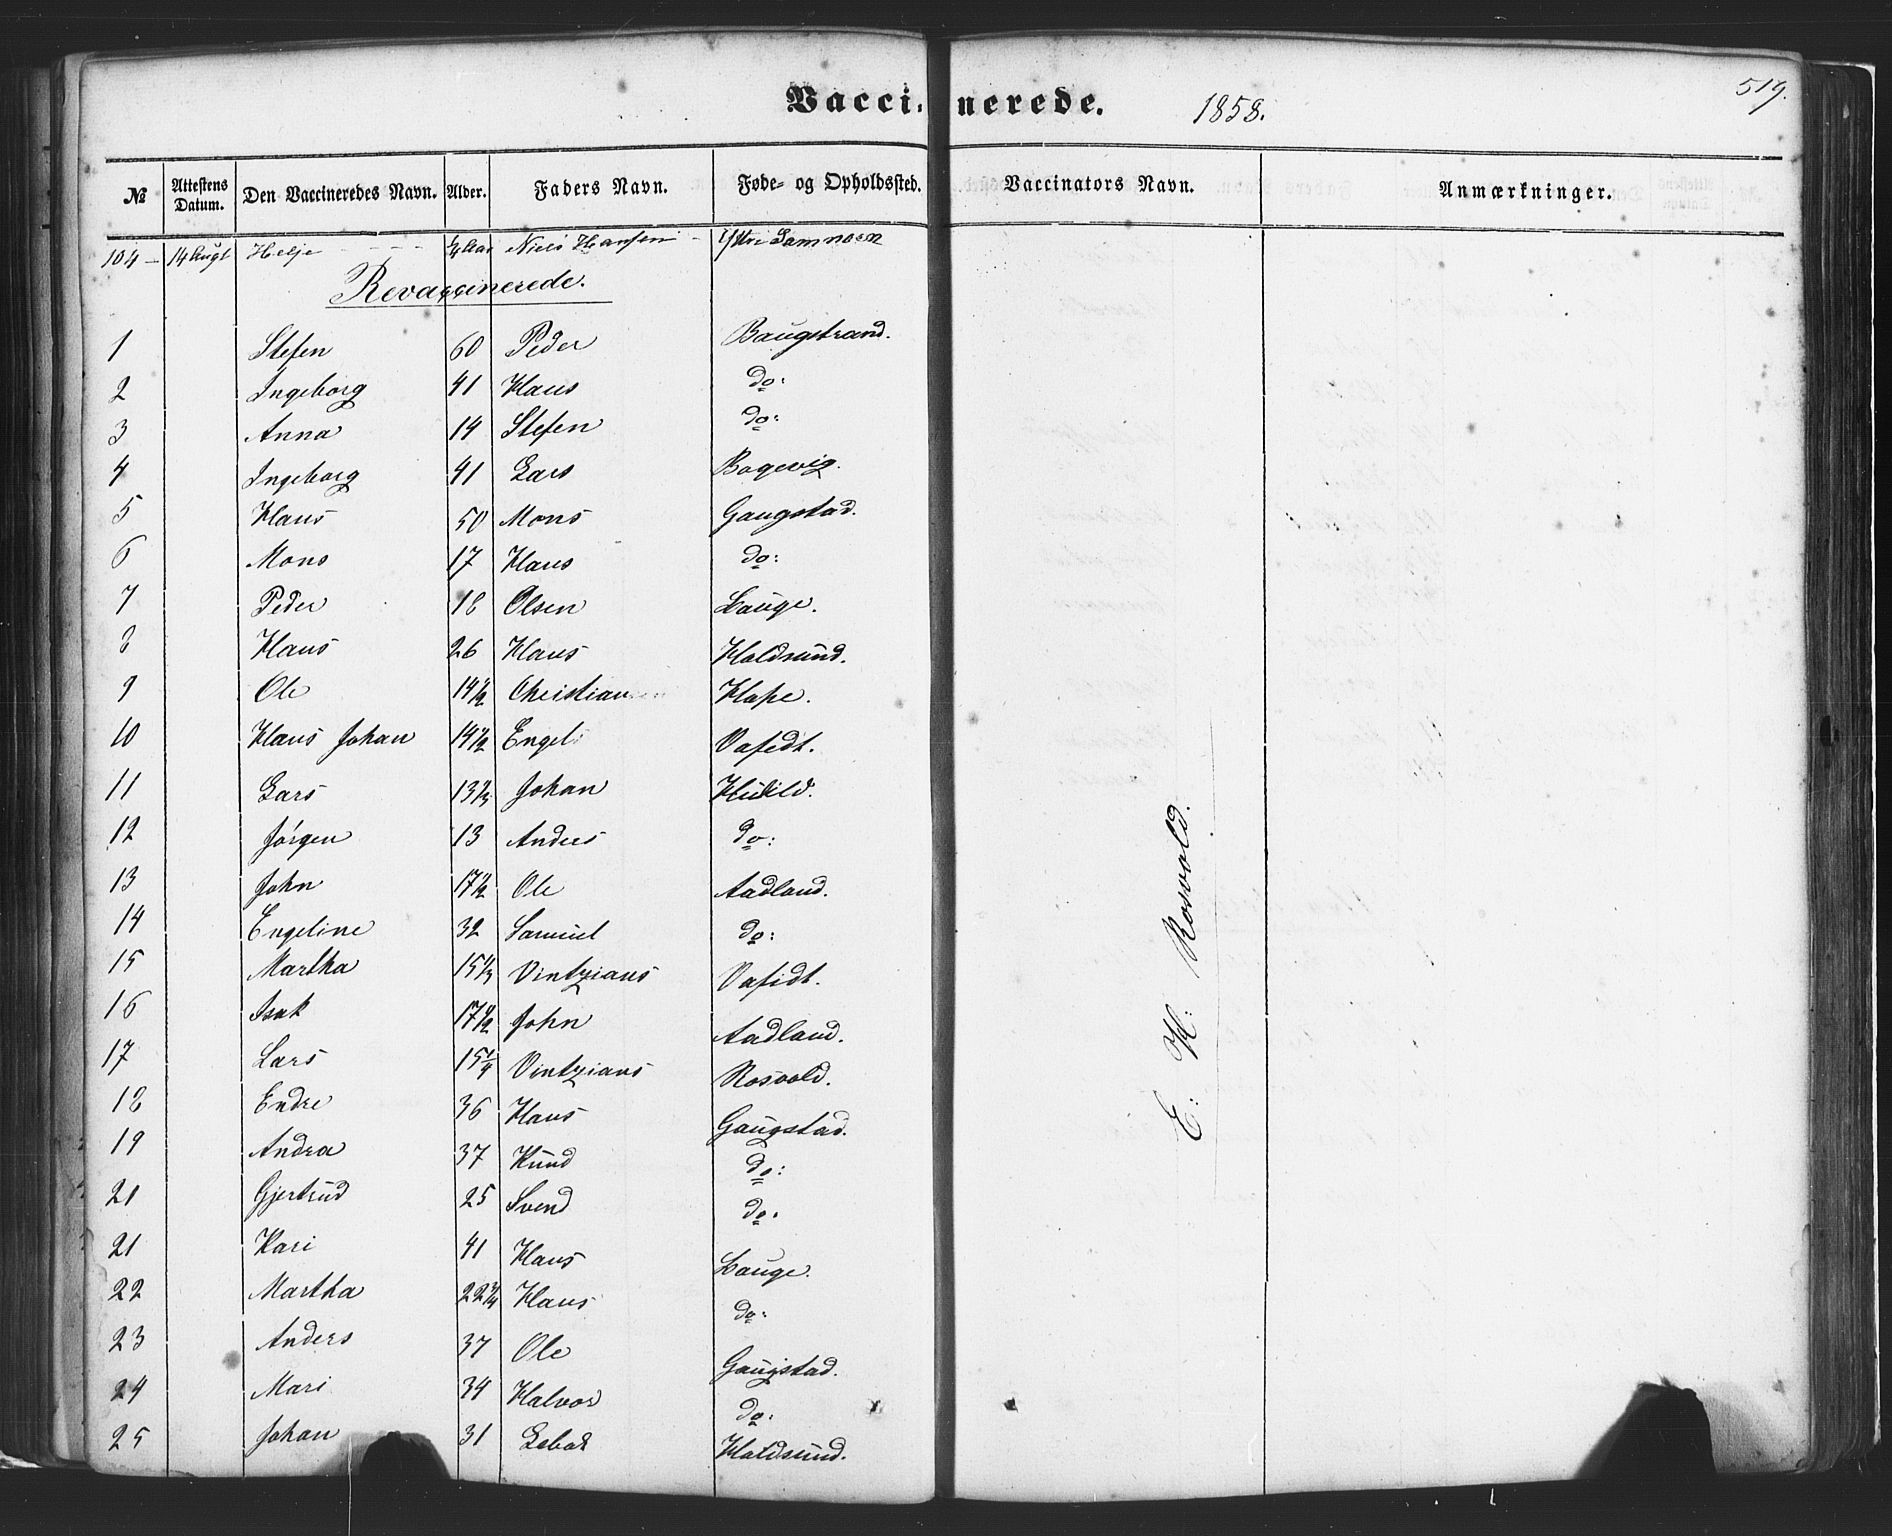 Vaccinerede. 1858. 519.
№ Attestens Datum. Den Vaccineredes Navn. Alder. Faders Navn. Føde- og Opholdssted. Vaccinators Navn. Anmærkninger.
104 – 14 Augt Helje - - - - Niels Hansen - Ytre
Revaccinerede.
1 Stefen 60 Peder Baugstrand.
2 Ingeborg 41 Hans do:
3 Anna 14 Stefen do:
4 Ingeborg 41 Lars Bagevig.
5 Hans 50 Mons Gaugstad.
6 Mons 17 Hans do:
7 Peder 18 Olsen Lauge.
8 Hans 26 Hans Haldsund.
9 Ole 14½ Christian
10 Hans Johan 14½ Engel Vafedt.
11 Lars 13⅓ Johan
12 Jørgen 13 Anders do:
13 John 17½ Ole Aadland.
14 Engeline 32 Samuel do:
15 Martha 15⅓ Vintzians Vafidt.
16 Isak 17½ John Aadland.
17 Lars 15¼ Vintzians Rosvold.
18 Endre 36 Hans Gaugstad.
19 Andra 37 Knud do:
21 Gjertrud 25 Svend do.
21 Kari 41 Hans Lauge.
22 Martha 22¾ Hans do:
23 Anders 37 Ole Gaugstad.
24 Mari 34 Halvor do:
25 Johan 31 Haldsund.
E: H: Rosvold.